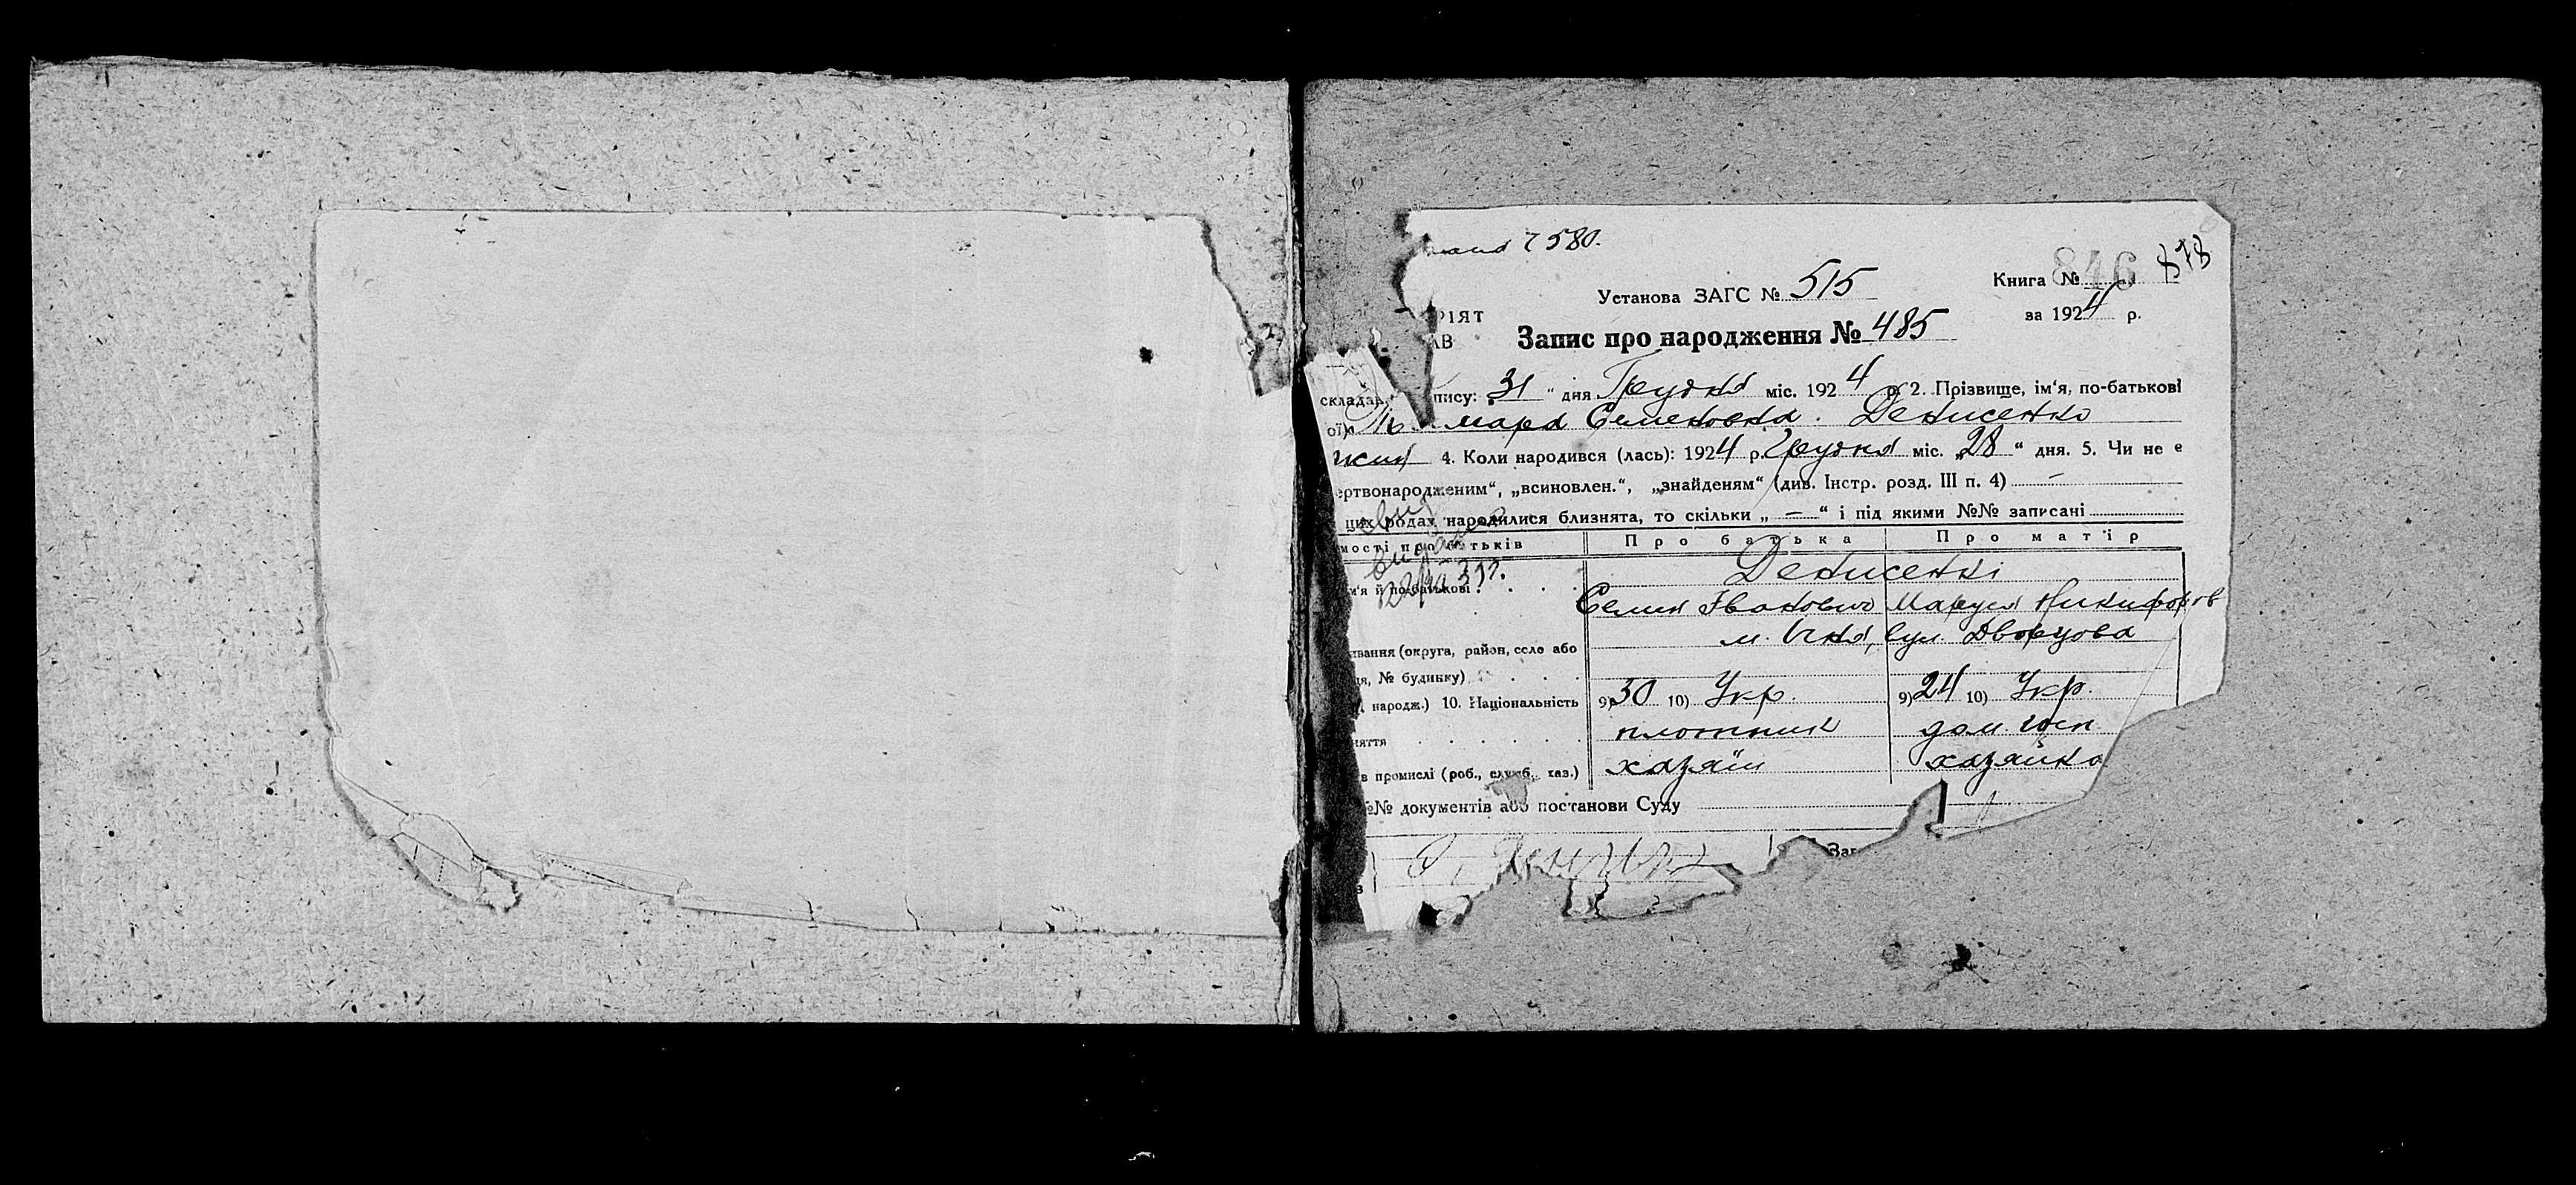 7580.
846 878
Установа ЗАГС № 515
Книга №
за 1924 р.
РІЯТ
АВ
Запис про народження № 485
складан пису: „31“ дня Грудня міс. 1924 р. 2. Прізвище, ім'я, по-батькові
ої) мара Семеновна. Денисенко
4. Коли народився (лась): 1924 р. Грудня міс. „28“ дня. 5. Чи не є
ертвонародженим“, „всиновлен.“, „знайденям“ (див. Інстр. розд. III п. 4) —
цих родах народилися близнята, то скільки „ — “ і під якими №№ записані
мості про батьків Про батька Про матір
Денисенкі
м'я й по-батькові Семен Іванович Маруся Никифоров
м. Ічня, вул. Дворцова
ивання (округа, район, село або
ця, № будинку)
народж.) 10. Національність 9) 30 10) Укр. 9) 24 10) Укр.
няття плотник дом. госп
в промислі (роб., служб., хаз.) хазяїн хазяйка
№№ документів або постанови Суду
Заг